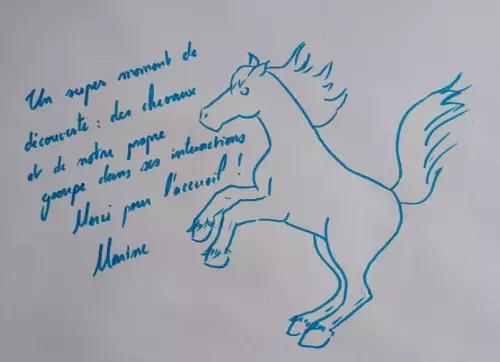 Un super moment de
découverte : des chevaux
et de notre propre
groupe dans ses interactions
Merci pour l'accueil !
Marine